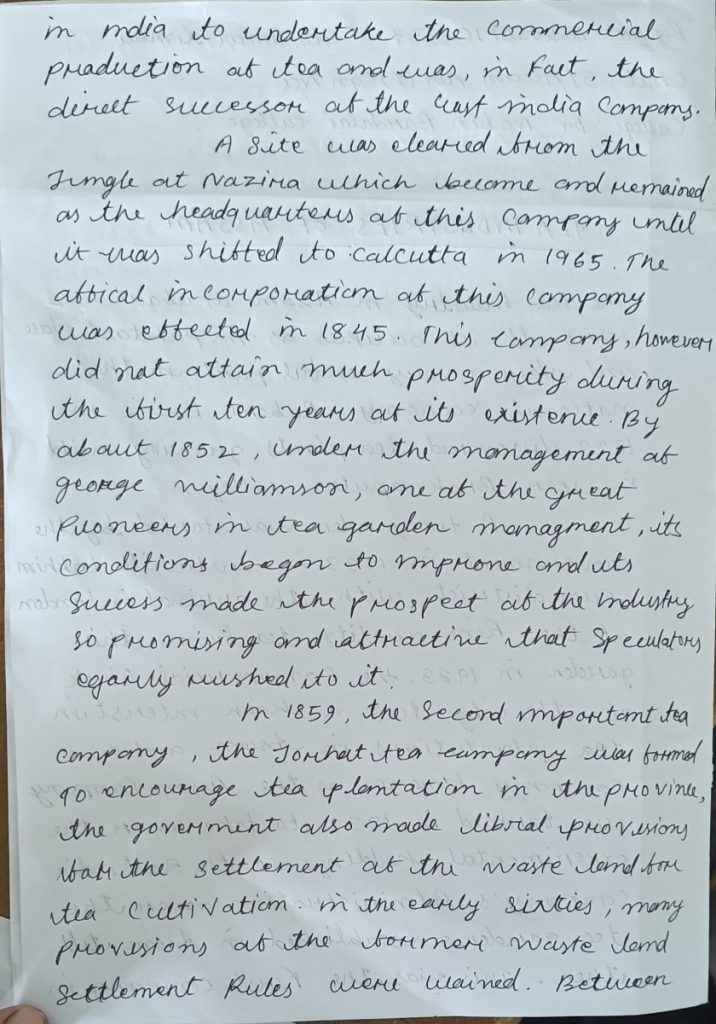 in india to undertake the commercial
production of tea and was, in fact, the
direct successor of the east india company.
A site was cleared from the
Jungle at Nazira which become and remained
as the headquarters of this company until
it was shifted to calcutta in 1965. The
offical incorporation of this company
was effected in 1845. This company, however
did not attain much prosperity during
the first ten years of its existence. By
about 1852, under the management of
george williamson, one of the great
Puoneers in tea garden managment, its
conditions began to improve and its
success made the prospect of the industry
so promising and attractive that speculators
egarly rushed to it.
In 1859, the second important tea
company, the Jorhat tea company was formed
To encourage tea plantation in the province,
the goverment also made libral provisions
for the settlement of the waste land for
tea cultivation. in the early sixties, many
provisions of the former waste land
settlement Rules were wained. Between